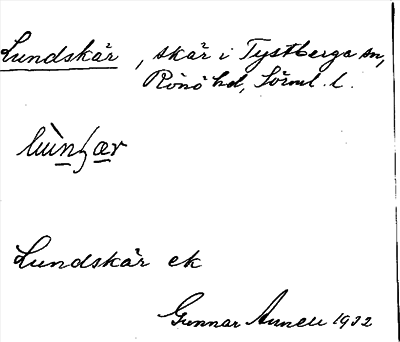 Lundskär, skär i Tystberga sn,
Rönö hd, Sörml. l.
Lundskär ek
Gunnar 1932